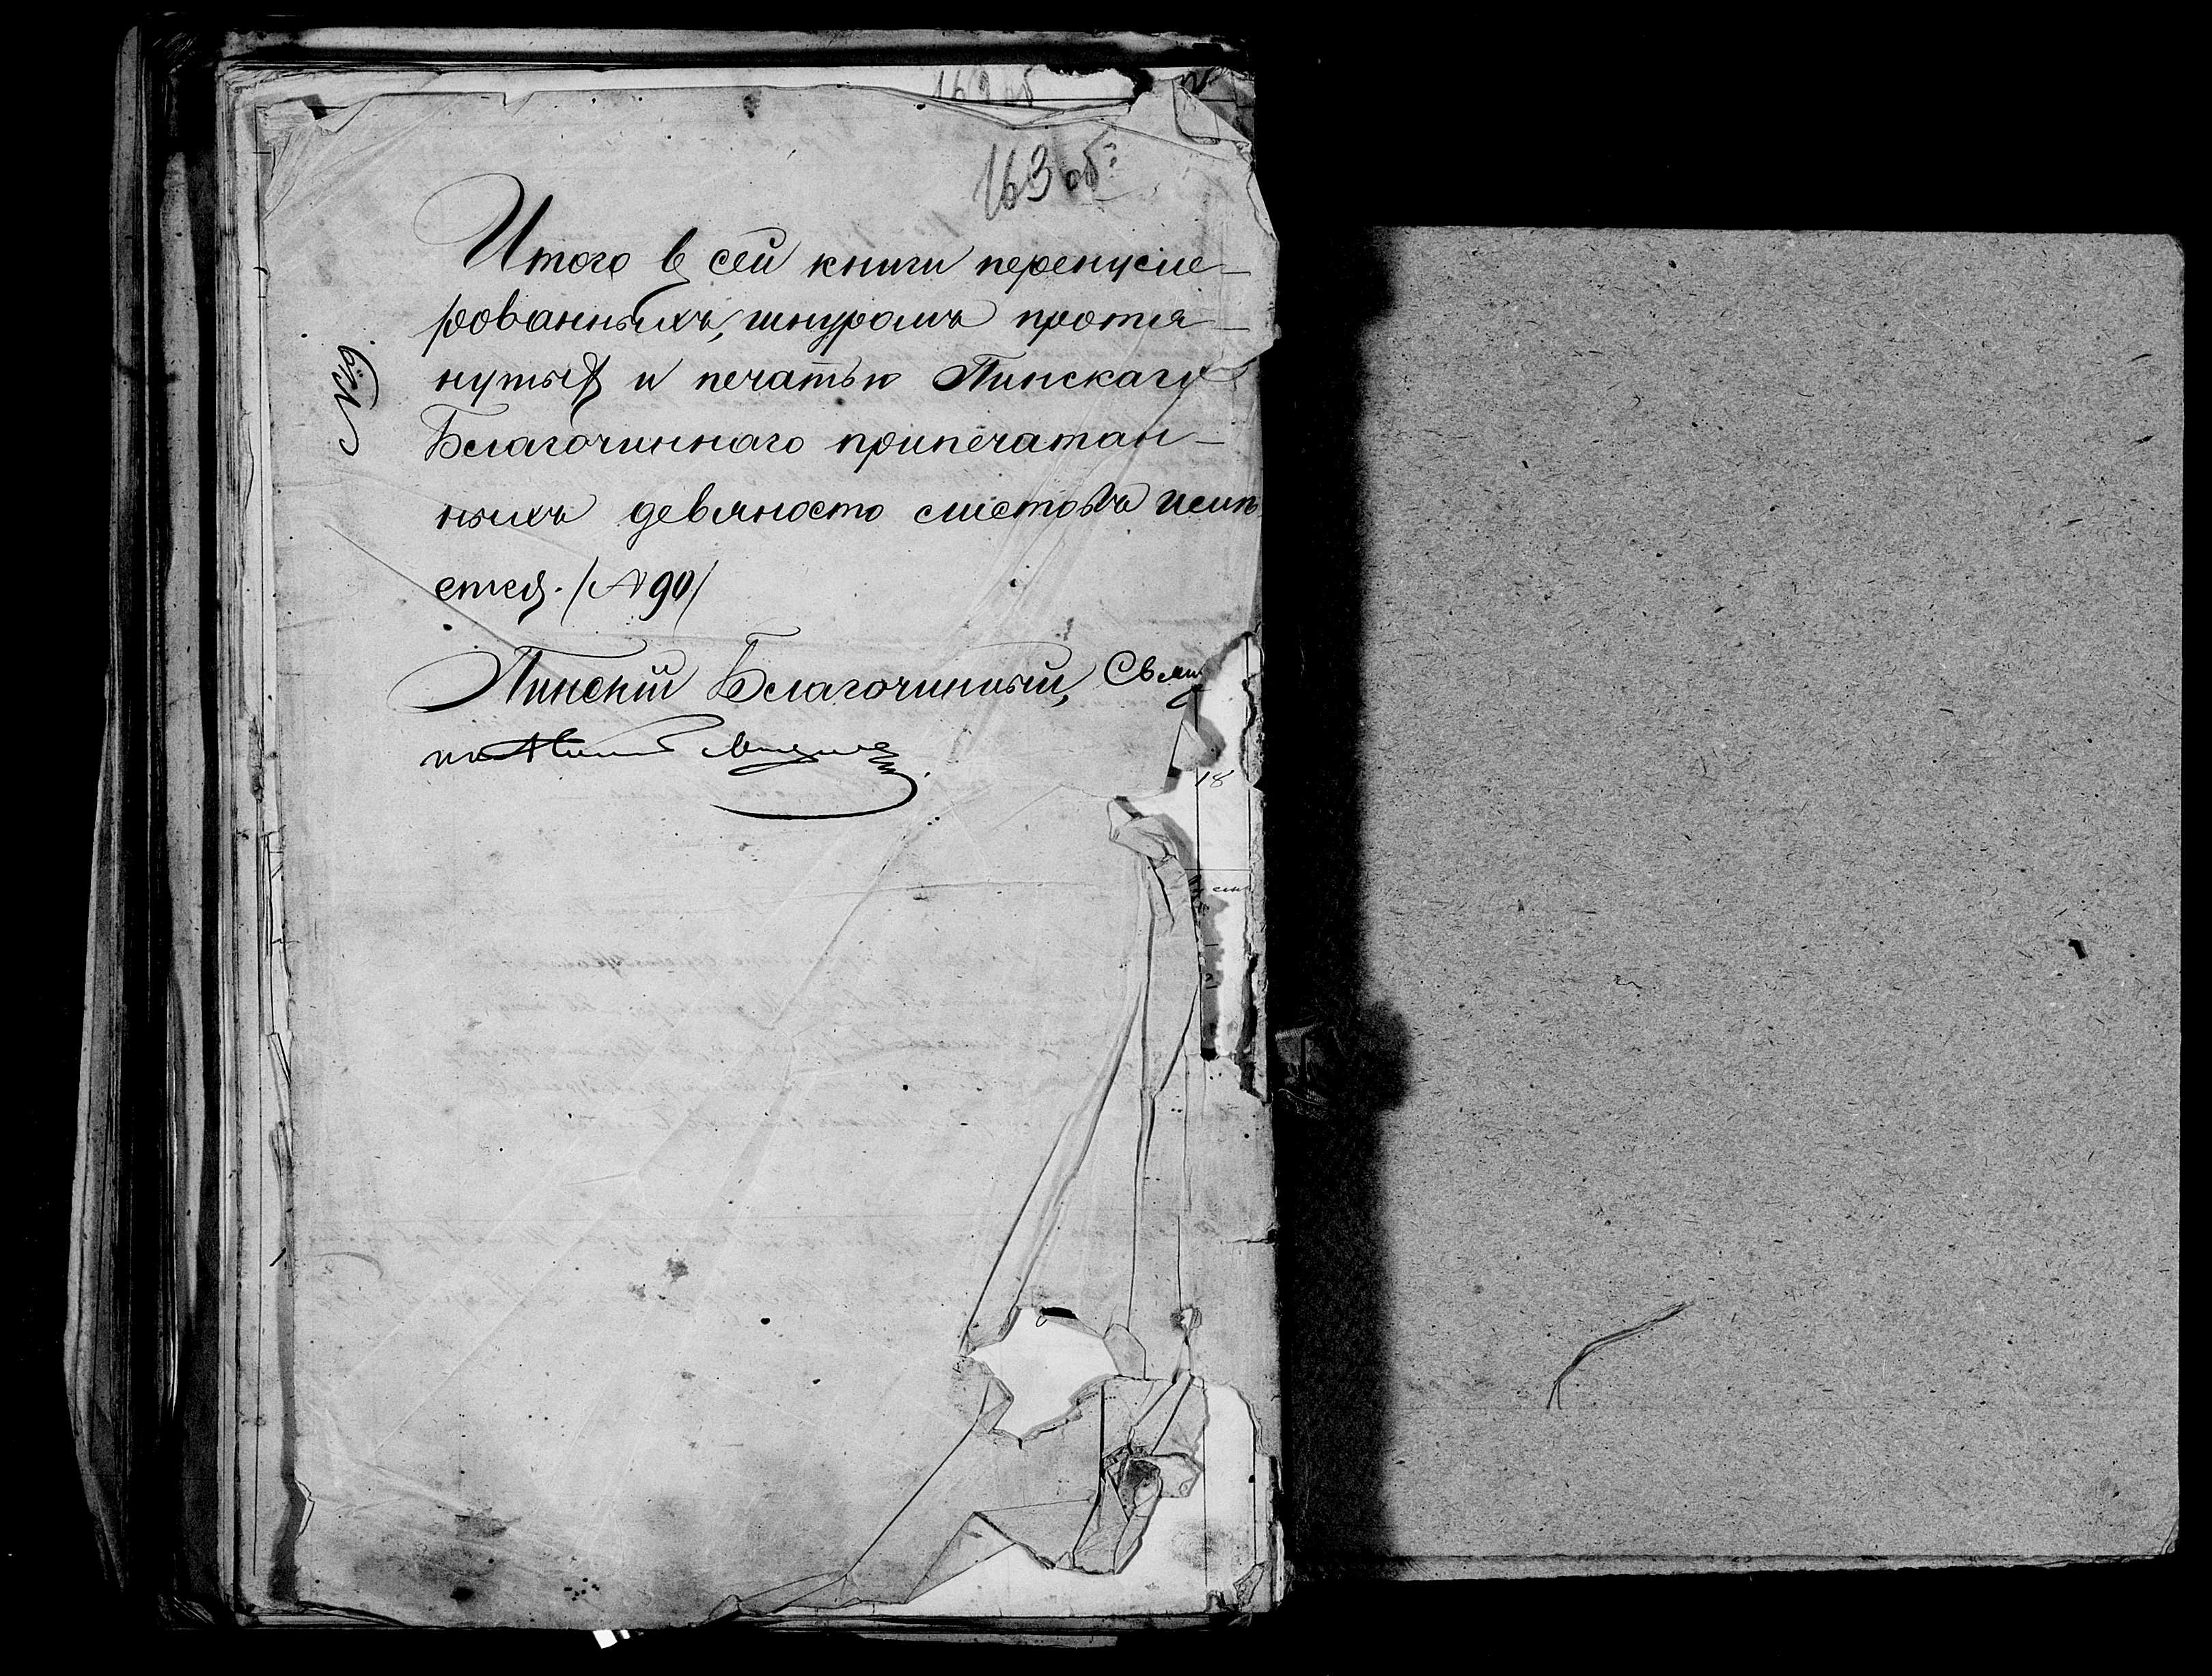 163 об:
Итого в сей книги перенуме-
рованныхъ, шнуромъ протя-
нутых и печатью Пинскаго
Благочиннаго припечатан-
ныхъ девяносто листовъ имѣ
ется. /№ 90/
Пинскій Благочинный, Свящ
№ 9.
18